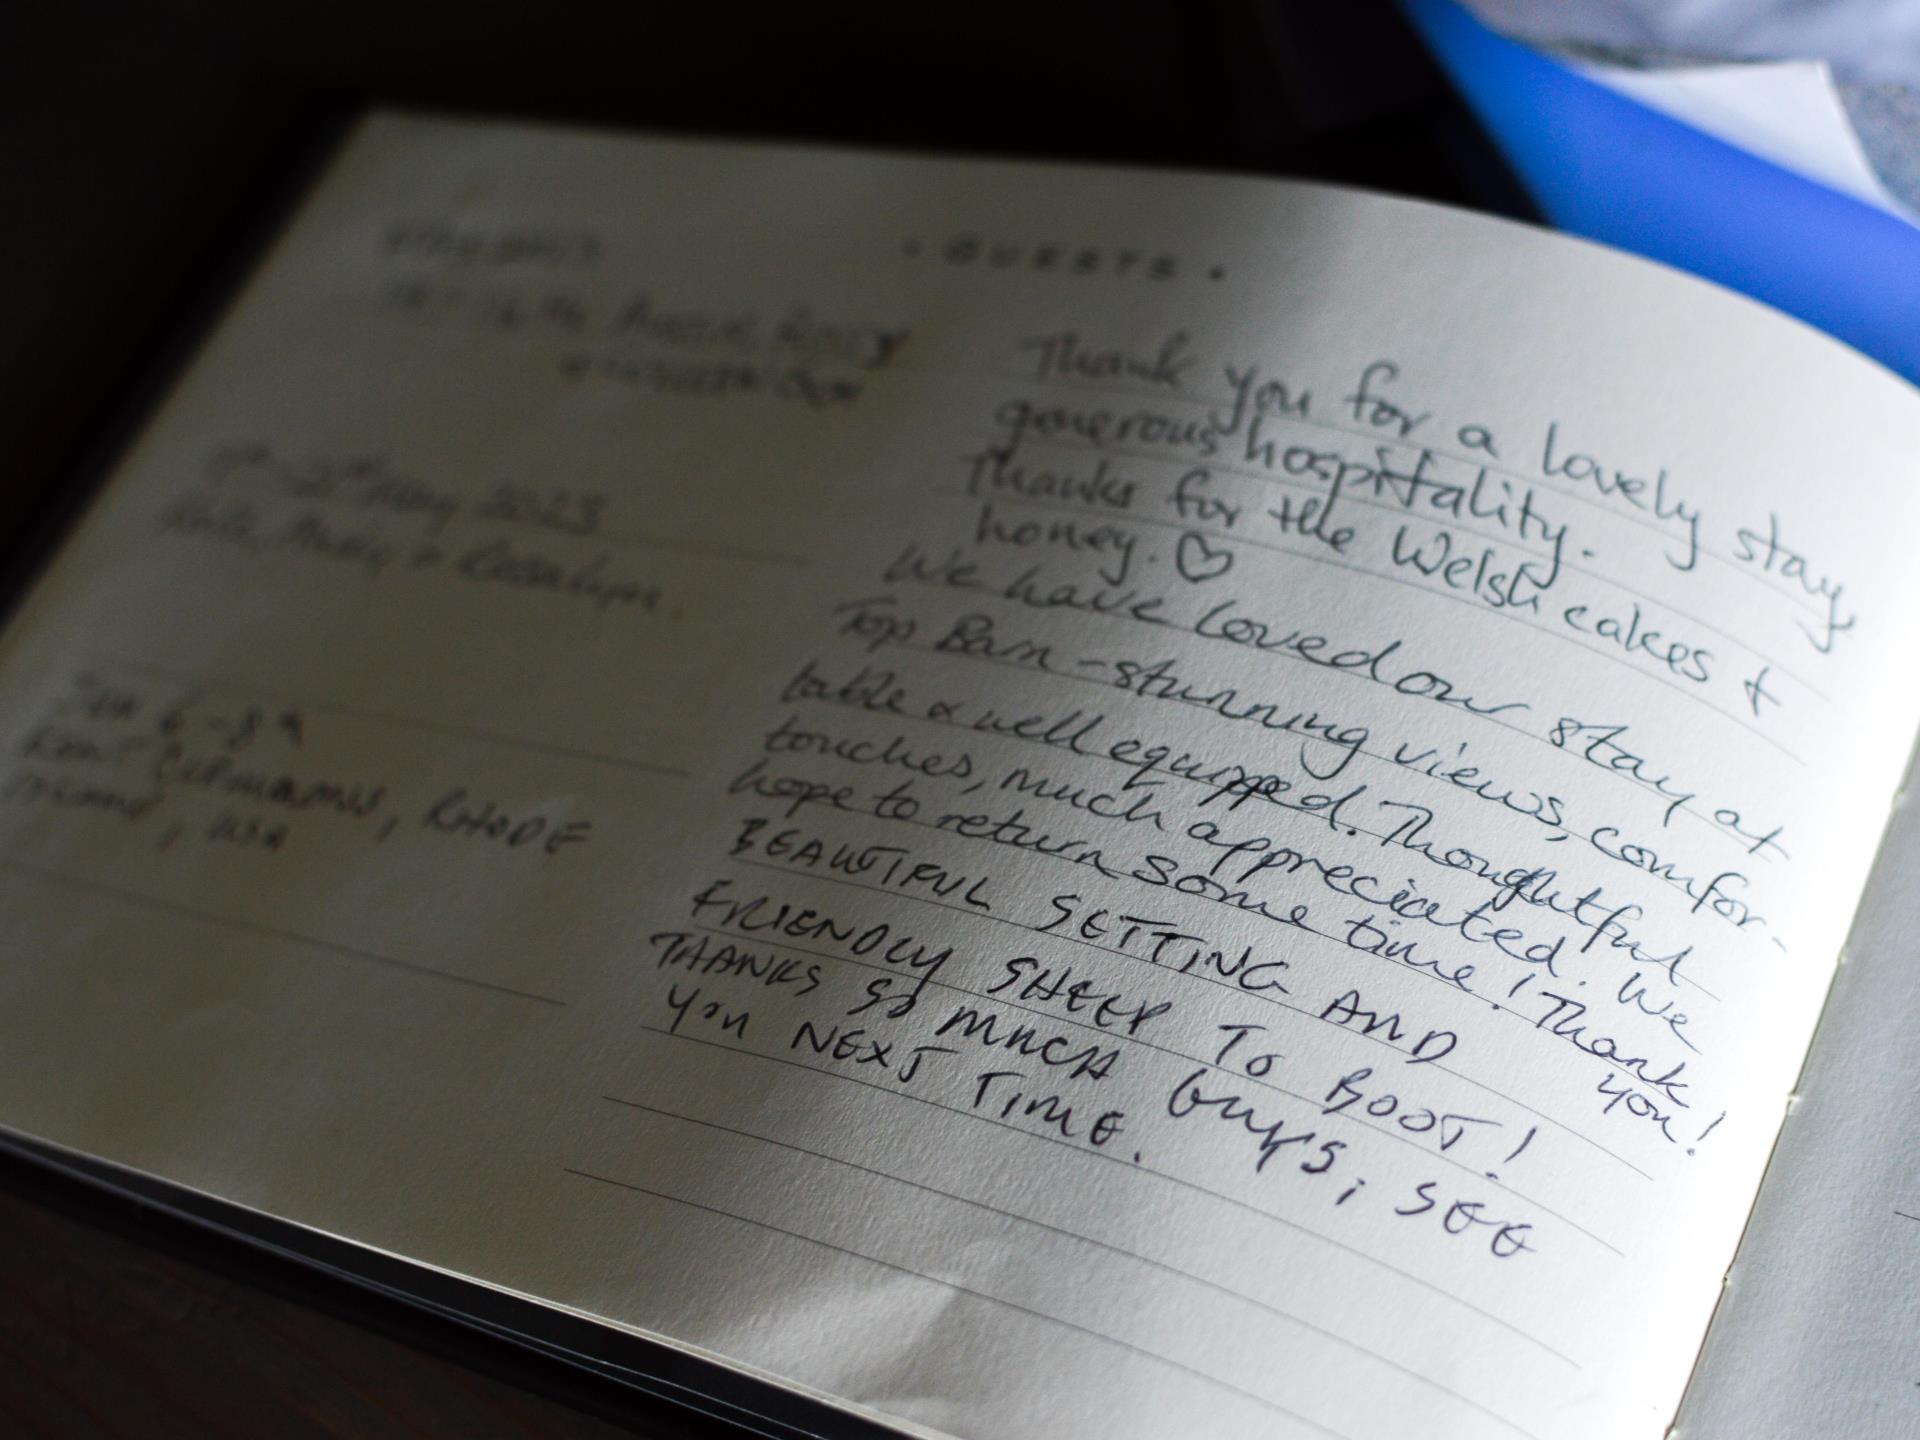 • GUESTS •
May 2023
Thank you for a lovely stay,
generous hospitality.
Thanks for the Welsh cakes +
honey. ♡
- 21st May 2023
We have loved our stay at
Top Barn - stunning views, comfor-
table & well equipped. Thoughtful
touches, much appreciated. We
hope to return some time! Thank
you!
RHODE
ISLAND, USA
BEAUTIFUL SETTING AND
FRIENDLY SHEEP TO BOOT!
THANKS SO MUCH GUYS, SEE
YOU NEXT TIME.